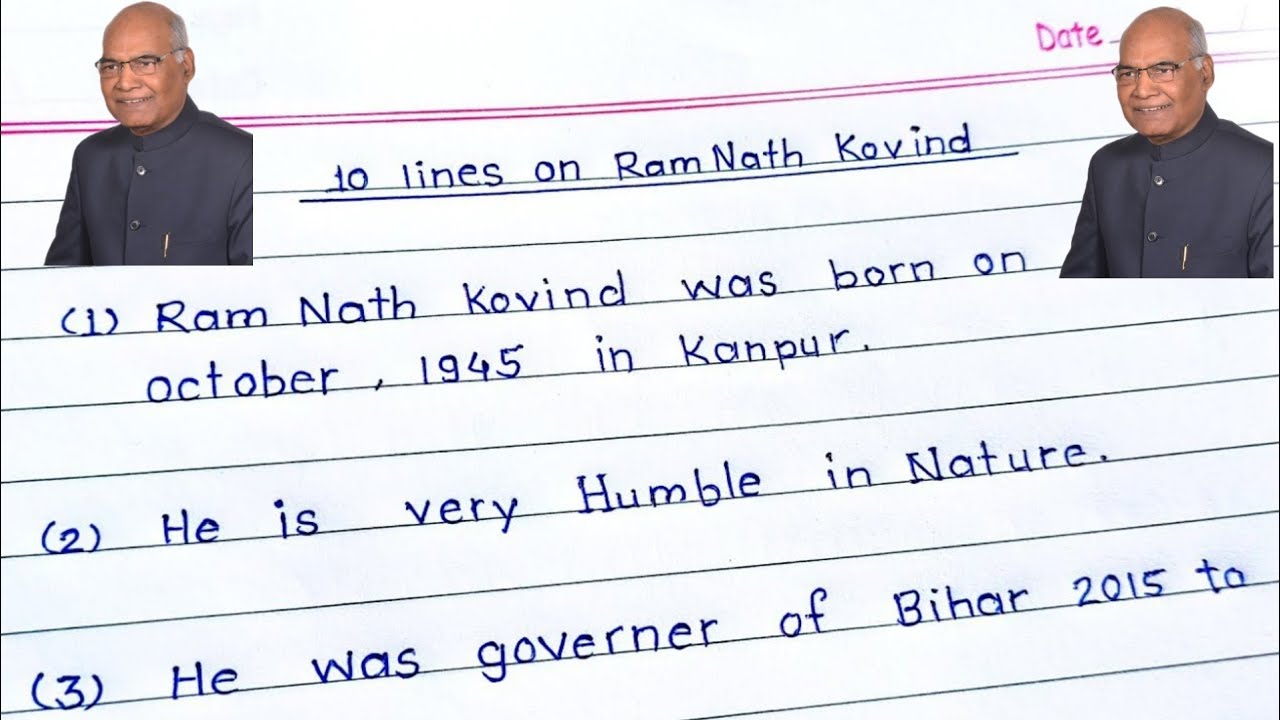 Date
10 lines on Ram Nath Kovind
(1) Ram Nath Kovind was born on
october, 1945 in Kanpur.
(2) He is very Humble in Nature.
(3) He was governer of Bihar 2015 to